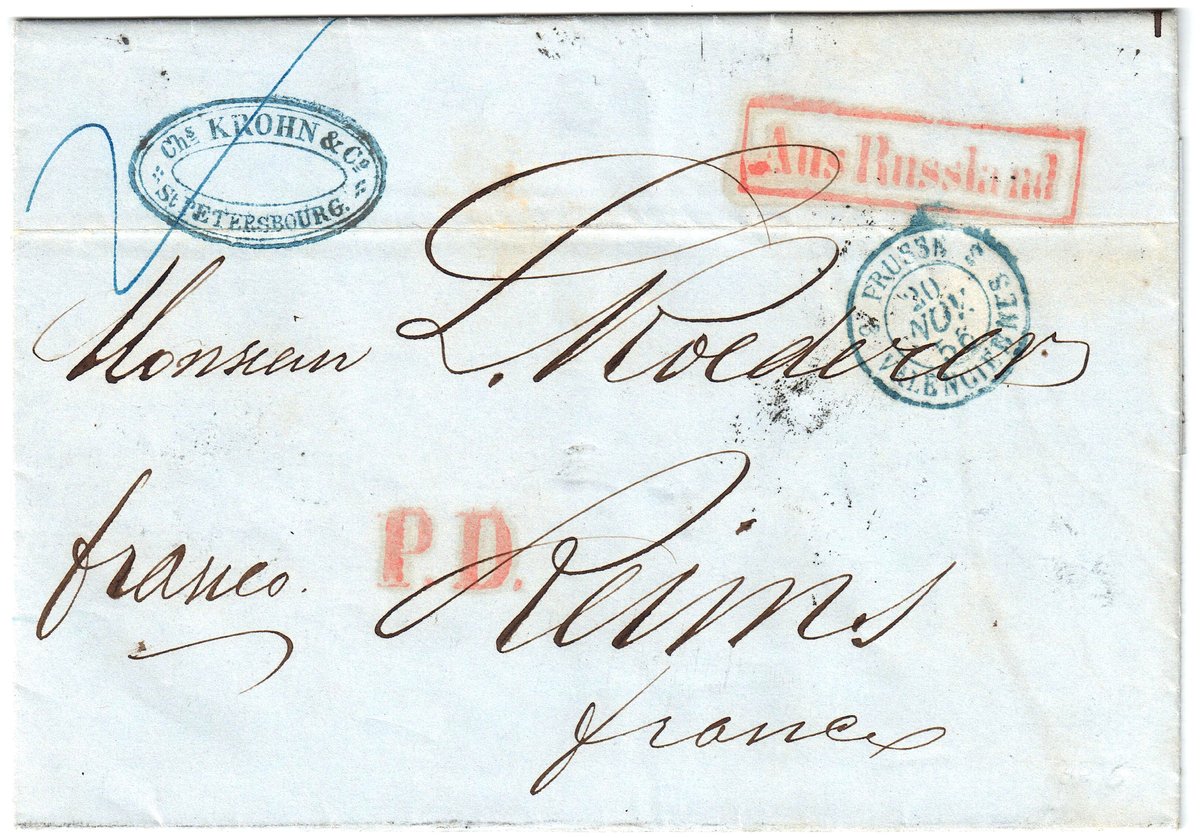 Chs KROHN & Co
St PETERSBOURG.
Aus Russland
PRUSSE
20
NOV.
56
VALENCIENNES
Monsieur L. Roederer
franco. P.D. Reims
france